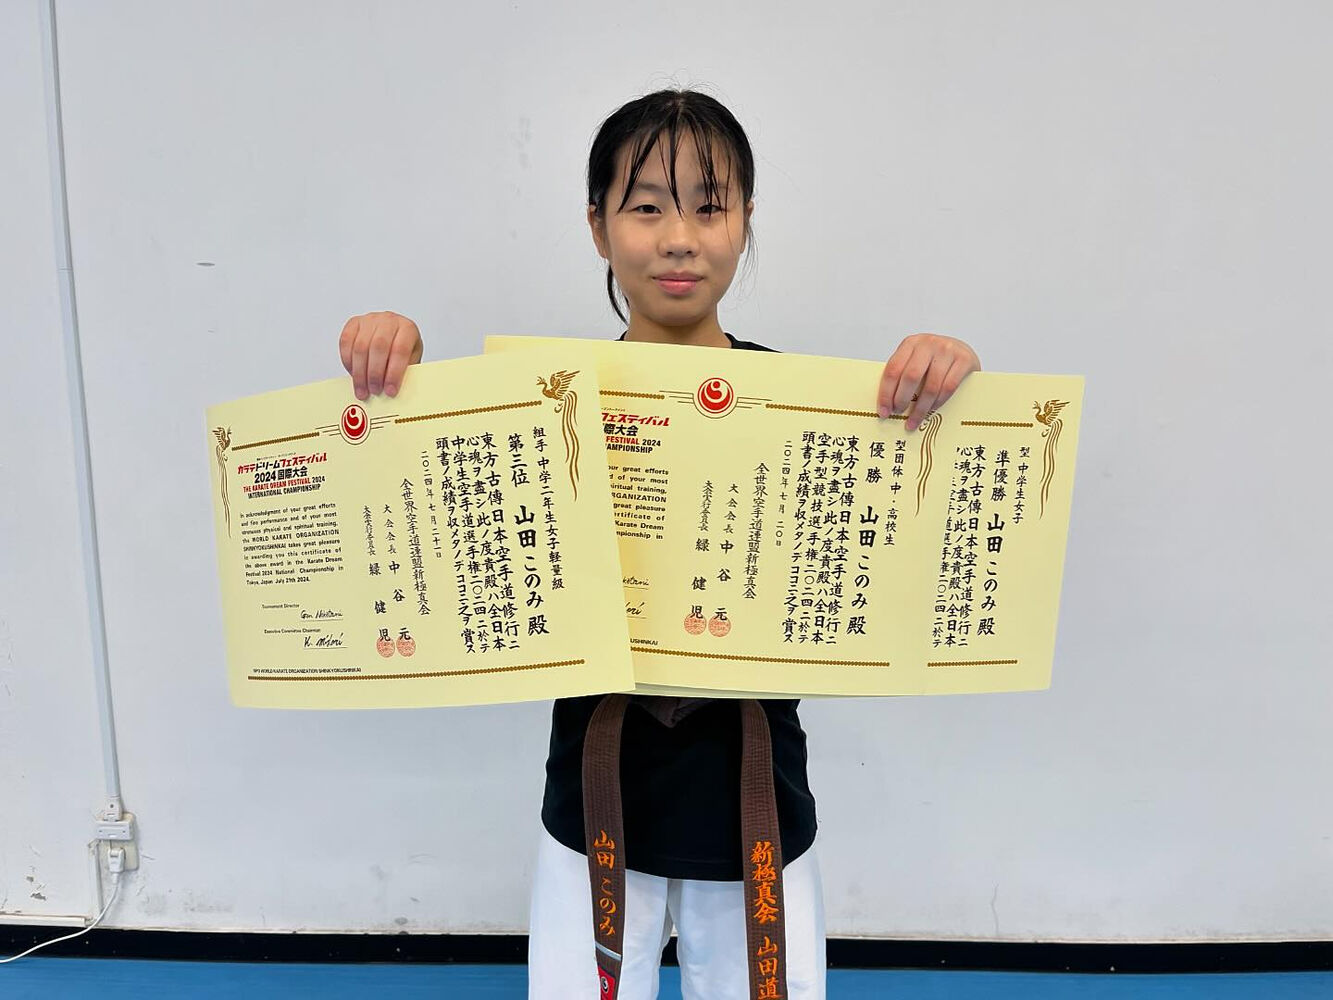 組手 中学二年生女子軽量級
第三位 山田このみ殿
東方古傳日本空手道修行ニ
心魂ヲ盡シ此ノ度貴殿ハ全日本
中学生空手道選手権二〇二四ニ於テ
頭書ノ成績ヲ収メタノデココニ之ヲ賞ス
二〇二四年七月二十一日
全世界空手道連盟新極真会
大会会長 中谷 元
大会実行委員長 緑 健児
カラテドリームフェスティバル
2024国際大会
THE KARATE DREAM FESTIVAL 2024
INTERNATIONAL CHAMPIONSHIP
In acknowledgment of your great efforts
and fine performance and of your most
strenuous physical and spiritual training,
the WORLD KARATE ORGANIZATION
SHINKYOKUSHINKAI takes great pleasure
in awarding you this certificate of
the above award in the Karate Dream
Festival 2024 National Championship in
Tokyo, Japan July 21st 2024.
Tournament Director
Executive Committee Chairman
NPO WORLD KARATE ORGANIZATION SHINKYOKUSHINKAI
型団体 中・高校生
優勝 山田このみ殿
東方古傳日本空手道修行ニ
心魂ヲ盡シ此ノ度貴殿ハ全日本
空手型競技選手権二〇二四ニ於テ
頭書ノ成績ヲ収メタノデココニ之ヲ賞ス
二〇二四年七月二〇日
全世界空手道連盟新極真会
大会会長 中谷 元
大会実行委員長 緑 健児
フェスティバル
際大会
FESTIVAL 2024
MPIONSHIP
your great efforts
d of your most
piritual training,
ORGANIZATION
great pleasure
certificate of
Karate Dream
mpionship in
SHINKAI
型 中学生女子
準優勝 山田このみ殿
東方古傳日本空手道修行ニ
心魂ヲ盡シ此ノ度貴殿ハ全日本
空手道選手権二〇二四ニ於テ
山田このみ
新極真会 山田道